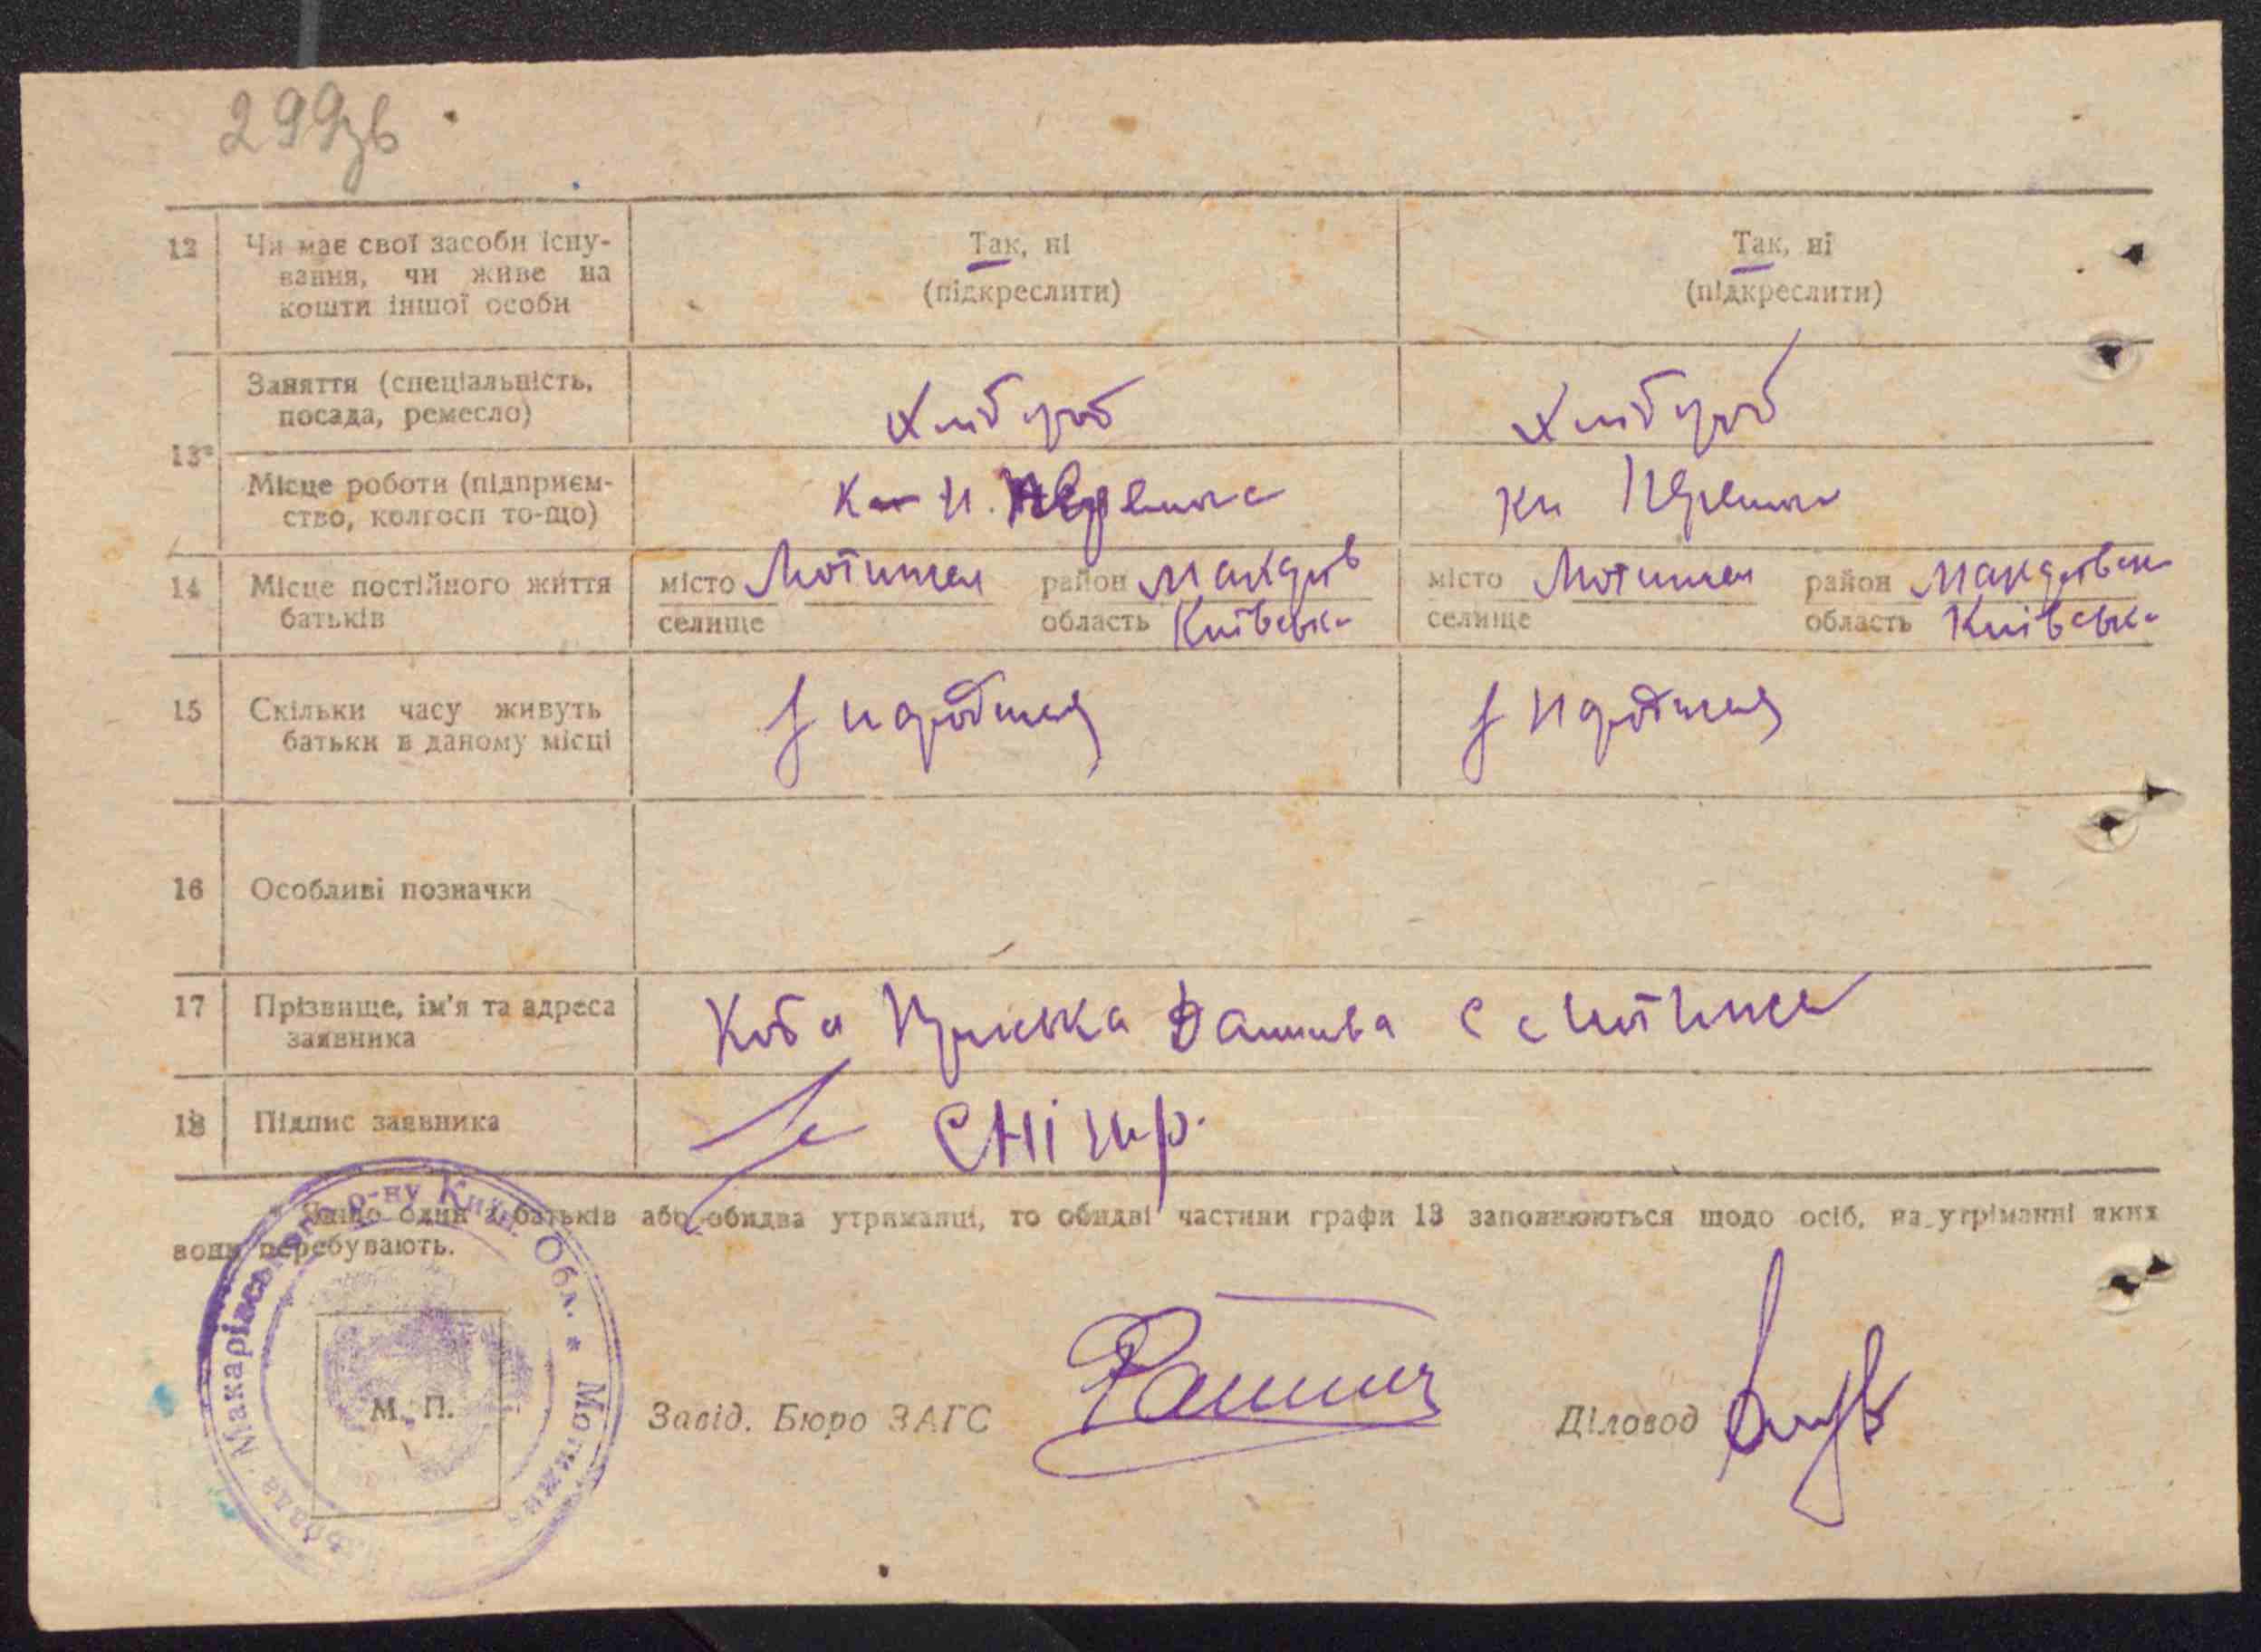 299зв
12 Чи має свої засоби існу-
вання, чи живе на
кошти іншої особи
Так, ні
(підкреслити)
Так, ні
(підкреслити)
13*
Заняття (спеціальність,
посада, ремесло)
Хлібороб
Хлібороб
Місце роботи (підприєм-
ство, колгосп то-що)
14 Місце постійного життя
батьків
місто Мотижен район Макарів
селище область Київськ
місто Мотижен район Макарівськ
селище область Київськ
15 Скільки часу живуть
батьки в даному місці
з народження
з народження
16 Особливі позначки
17 Прізвище, ім'я та адреса
заявника
Коба с Мотижен
18 Підпис заявника
* Якщо один з батьків або обидва утриманці, то обидві частини графи 13 заповнюються щодо осіб, на утріманні яких
вони перебувають.
Макарівського р-ну Київ. Обл. * Мотижин
М. П.
Завід. Бюро ЗАГС
Діловод